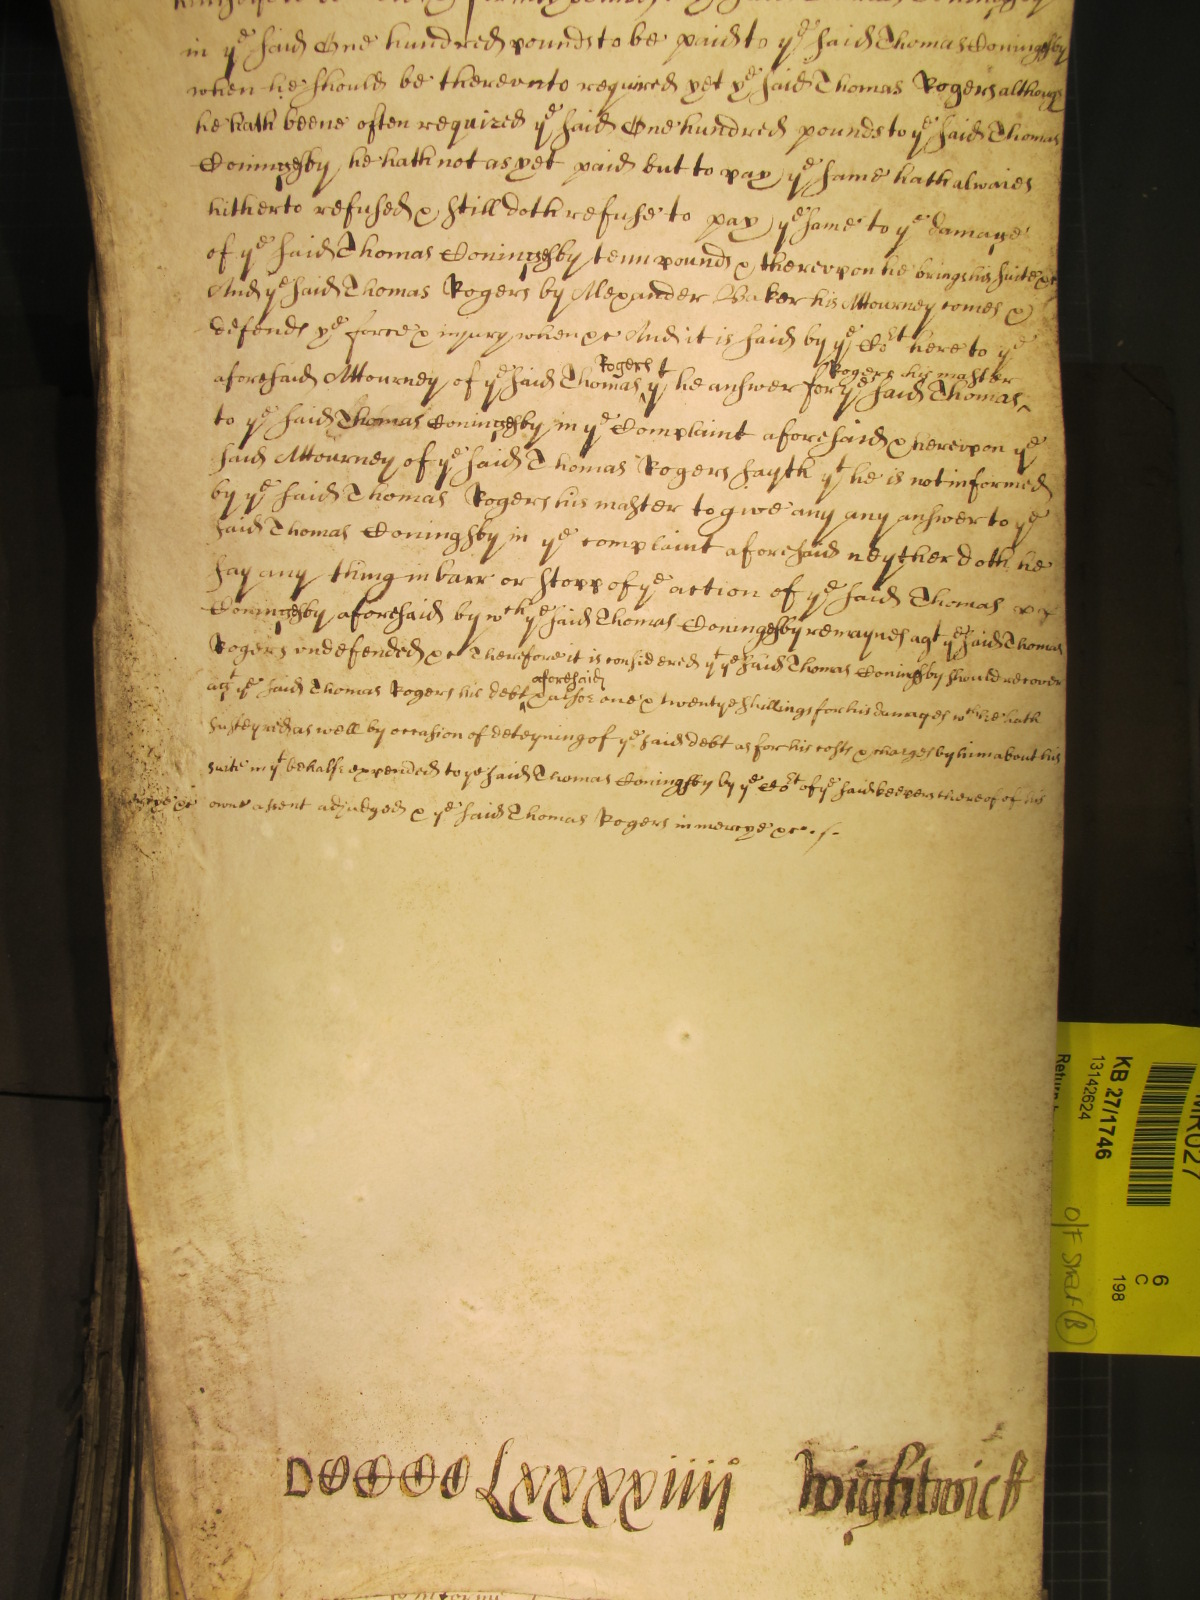 in ye said One hundred pounds to be paid to ye said Thomas Coningesby
when he should be therevnto required yet ye said Thomas Rogers although
he hath beene often required ye said One hundred pounds to ye said Thomas
Coningesby he hath not as yet paid but to pay ye same hath alwaies
hitherto refused & still doth refuse to pay ye same to ye damage
of ye said Thomas Coningesby tenn pounds & therevpon he brings his suite &c
And ye said Thomas Rogers by Alexander Baker his Attourney comes &
defends ye force & injury when &c And it is said by ye Cort here to ye
Rogers
Rogers his master
aforesaid Attourney of ye said Thomas yt he answer for ye said Thomas
to ye said Thomas Coningesby in ye Complaint aforesaid & herevpon ye
said Attourney of ye said Thomas Rogers sayth yt he is not informed
by ye said Thomas Rogers his master to give any any answer to ye
said Thomas Coningsby in ye complaint aforesaid neyther doth he
say any thing in barr or stopp of ye action of ye said Thomas
Coningesby aforesaid by wch ye said Thomas Coningesby remaynes agt ye said Thomas
Rogers vndefended &c Therefore it is considered yt ye said Thomas Coningsby should recover
aforesaid
agt ye said Thomas Rogers his debt & alsoe one & twentye shillings for his damages wch he hath
susteyned as well by occasion of deteyning of ye said debt as for his costs & charges by him about his
suite in yt behalfe expended to ye said Thomas Coningsby by ye Cort of ye said keepers thereof of his
mercye &c owne assent adjudged & ye said Thomas Rogers in mercye &c
DCCCCLxxxxiiij Wightwick
MR027
KB 27/1746
13142624
6
C
198
O/F Shelf (B)